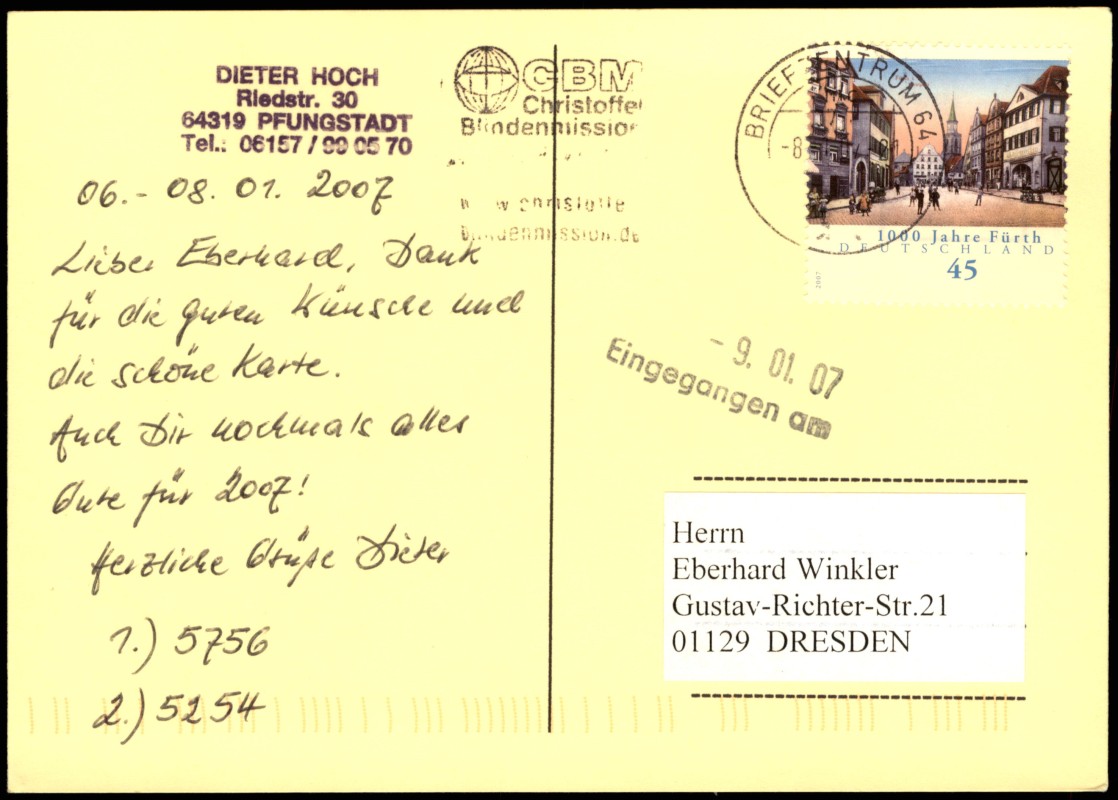 DIETER HOCH
Riedstr. 30
64319 PFUNGSTADT
Tel.: 06157 / 99 05 70
06.- 08. 01. 2007
Lieber Eberhard, Dank
für die guten Wünsche und
die schöne Karte.
Auch Dir nochmals alles
Gute für 2007!
Herzliche Grüße Dieter
1.) 5756
2.) 5254
CBM
Christoffel
Blindenmission
www.christoffel
blindenmission.de
BRIEFZENTRUM 64
-8
1000 Jahre Fürth
DEUTSCHLAND
45
2007
- 9. 01. 07
Eingegangen am
Herrn
Eberhard Winkler
Gustav-Richter-Str.21
01129 DRESDEN